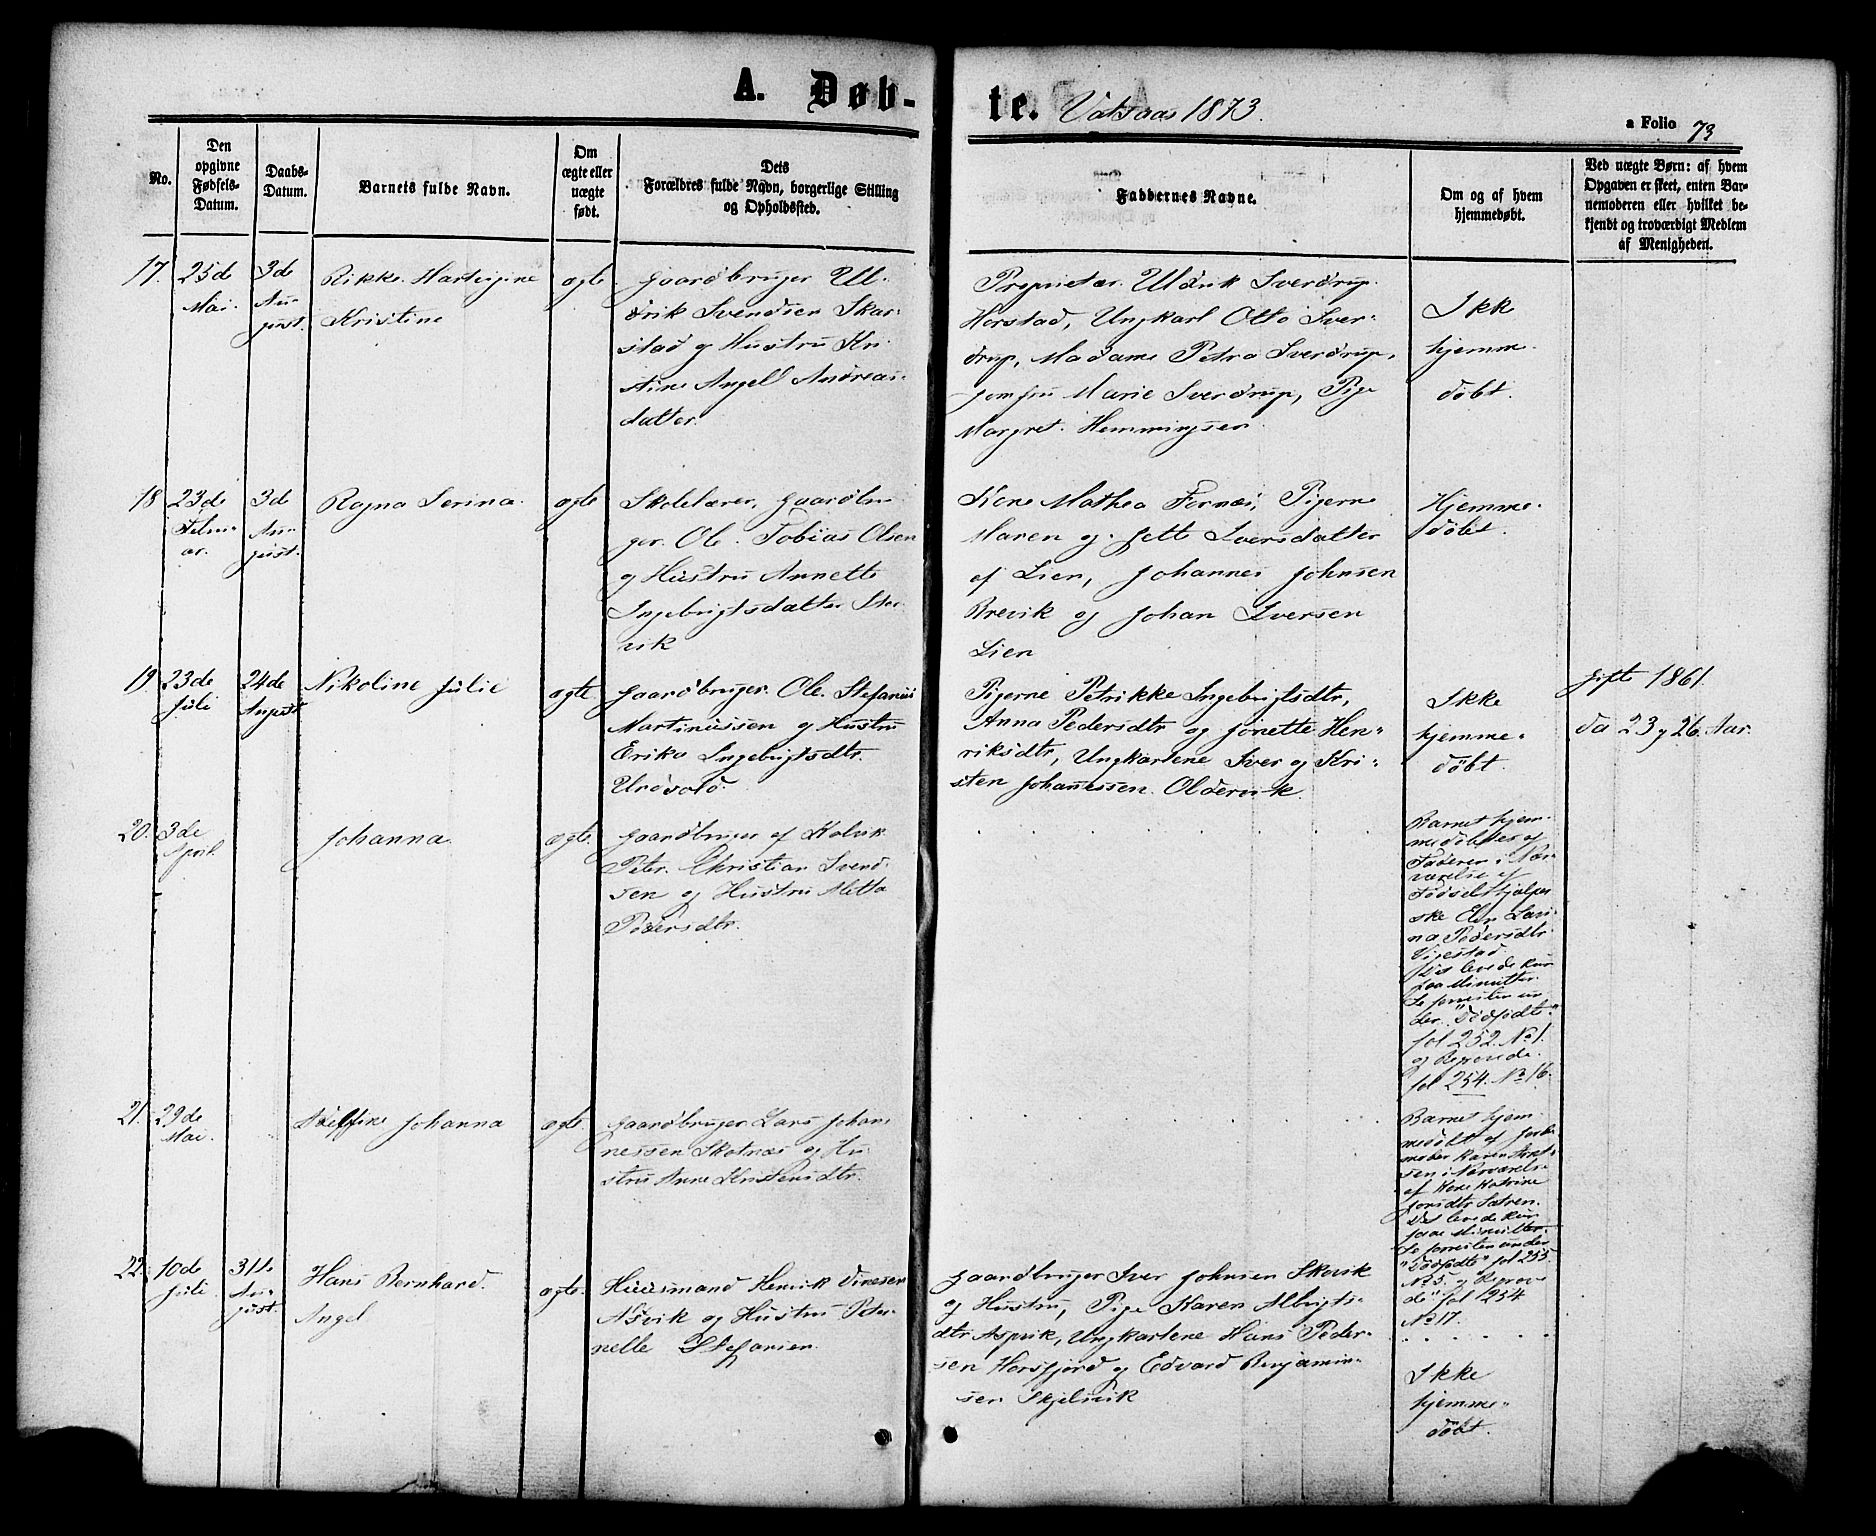 A. Døb-
te. Vatsaas 1873.
a Folio 73
No.
Den
opgivne
Fødsels-
Datum.
Daabs-
Datum.
Barnets fulde Navn.
Om
ægte eller
uægte
født.
Dets
Forældres fulde Navn, borgerlige Stilling
og Opholdssted.
Faddernes Navne.
Om og af hvem
hjemmedøbt.
Ved uægte Børn: af hvem
Opgaven er skeet, enten Bar-
nemoderen eller hvilket be-
kjendt og troværdigt Medlem
af Menigheden.
17.
25de
Mai.
3de
Au-
gust.
Rikke Hartvigine
Kristine
ægte
Gaardbruger Ul-
drik Svendsen Skar-
stad og Hustru Kri-
stine Angell Andreas-
datter.
Proprietær Uldrik Sverdrup
Horstad, Ungkarl Otto Sver-
drup, Madame Petra Sverdrup,
Jomfru Marie Sverdrup, Pige
Margret Hemmingsen.
Ikke
hjemme-
døbt.
18
23de
Februar
3de
Au-
gust.
Ragna Serina.
ægte
Skolelærer, Gaardbru
ger Ole Tobias Olsen
og Hustru Annette
Ingebrigtsdatter Stor-
vik
Kone Mathea Fornæs, Pigerne
Maren og Jette Iversdatter
af Lien, Johannes Johnsen
Brevik og Johan Iversen
Lien
Hjemme-
døbt.
19
23de
Juli
24de
August
Nikoline Julie
ægte
Gaardbruger Ole Stefanus
Martinussen og Hustru
Erika Ingebrigtsdtr.
Urdvold.
Pigerne Petrikke Ingebrigtsdtr,
Anna Pedersdtr og Jonette Hen-
riksdtr, Ungkarlene Iver og Kri-
sten Johannessen Oldervik.
Ikke
hjemme-
døbt.
Gifte 1861
da 23 og 26 Aar.
20.
3de
April.
Johanna
ægte
Gaardbruger af Kalvik
Peter Christian Svend-
sen og Hustru Metta
Pedersdtr.
Barnet hjem-
medøbtes af
Faderen i Nær-
værelse af
Fødselshjelper
ske Elen Lari-
na Pedersdtr
Vigestad
Det levede kun
faa Minutter.
Se forresten un-
der "Dødfødte"
fol 252. No 1.
og Begravede
fol 254. No 16.
21.
29de
Mai.
Delfine Johanna
ægte
Gaardbruger Lars Johan-
nessen Skotnæs og Hu-
stru Anne Kristensdtr.
Barnet hjem-
medøbt af Jorde-
moder Karen
sen i Nærværelse
af Kone Katrine
Jonsdtr Sætren.
Det levede kun
faae Minutter.
Se forresten under
"Dødfødte" fol 255.
No 5. og Begrave-
de fol 254
No 17.
22.
10de
Juli
31te
Au-
gust.
Hans Bernhard
Angel
ægte.
Huusmand Henrik
Aspvik og Hustru Peter-
nelle Stefansen.
Gaardbruger Iver Johnsen Skavik
og Hustru, Pige Karen Albrigts-
dtr Aspvik, Ungkarlene Hans Peder-
sen Horsfjord og Edvard Benjamin-
sen Skjelvik
Ikke
hjemme-
døbt.